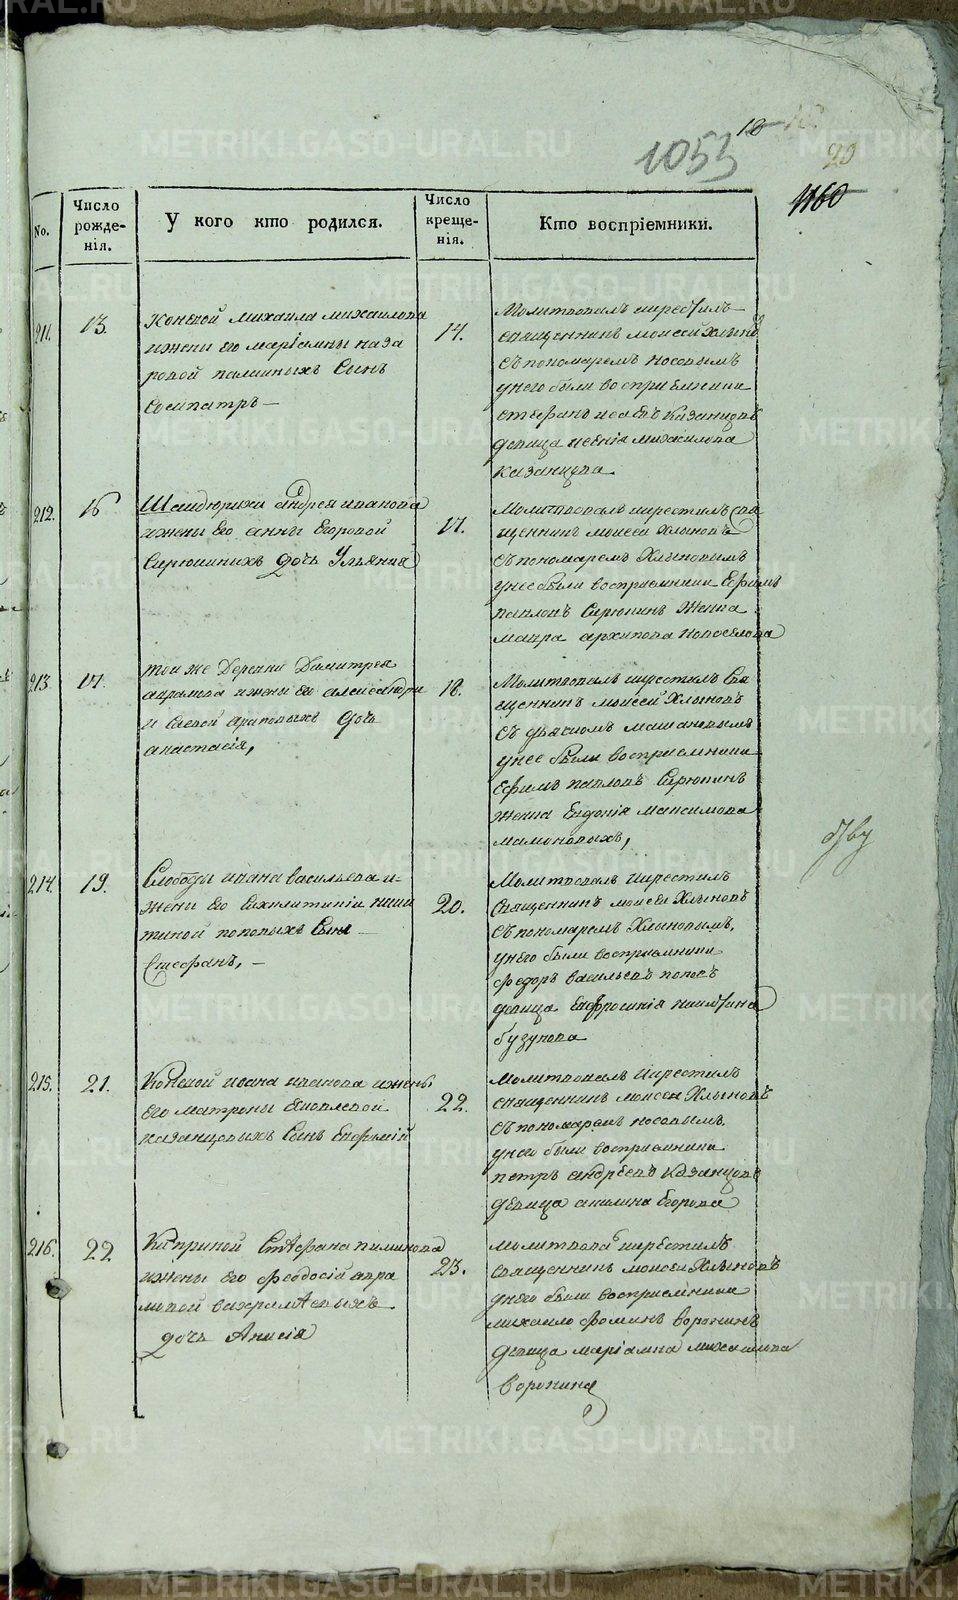 1053
18
20
1160
No.
Число рожде-нія.
У кого кто родился.
Число креще-нія.
Кто воспріемники.
211.
13.
Конской михаила михаилова
и жены его маріамны наза
ровой палкиныхъ Сынъ
Сосипатръ —
14.
Молитвовалъ икрестилъ
священникъ моисей Хлыно
съ пономаремъ носовымъ
унего были воспріемники
стефанъ исаевъ Казанцовъ
девица михаилова
казанцова
212.
16
Шандюрихи андрея иванова
и жены его анны Егоровой
Сирюшиныхъ дочь Ульянна
17.
Молитвовалъ икрестилъ свя
щенникъ моисей Хлыновъ
съ пономаремъ Хлыновымъ
унее были воспріемники Ефимъ
павловъ Сирюшинъ женка
мавра архипова новоселова
213.
17.
той же Деревни Димитрея
аврамова и жены его александры
дочь
анастасія,
18.
Молитвовалъ икрестилъ Свя
щенникъ моисей Хлыновъ
съ дьячкомъ
унее были воспріемники
Ефимъ павловъ Сирюшинъ
женка Евдокія максимова
мамоновыхъ,
214.
19.
Слободы ивана васильева и
жены его никитиной поповыхъ Сынъ
Стефанъ, —
20.
Молитвовалъ икрестилъ
Священникъ моисей Хлыновъ
съ пономаремъ Хлыновымъ,
унего были воспріемники
федоръ васильевъ поповъ
девица Евфросинія
бузунова
215.
21.
Конской иоана иванова и жены
его матроны яковлевой
казанцовыхъ Сынъ Евфимій
22.
Молитвовалъ икрестилъ
священникъ моисей Хлыновъ
съ пономаремъ носовымъ.
унего были воспріемники
петръ андреевъ казанцовъ
девица акилина Егорова
216.
22
Куприной Стефана пиминова
и жены его феодосіи авра
мовой вахрамѣевыхъ
дочь Анисія
23.
молитвова икрестилъ
священникъ моисей Хлыновъ
унего были воспріемники
михайло фоминъ воронинъ
девица маріамна михаилова
воронина
METRIKI.GASO-URAL.RU